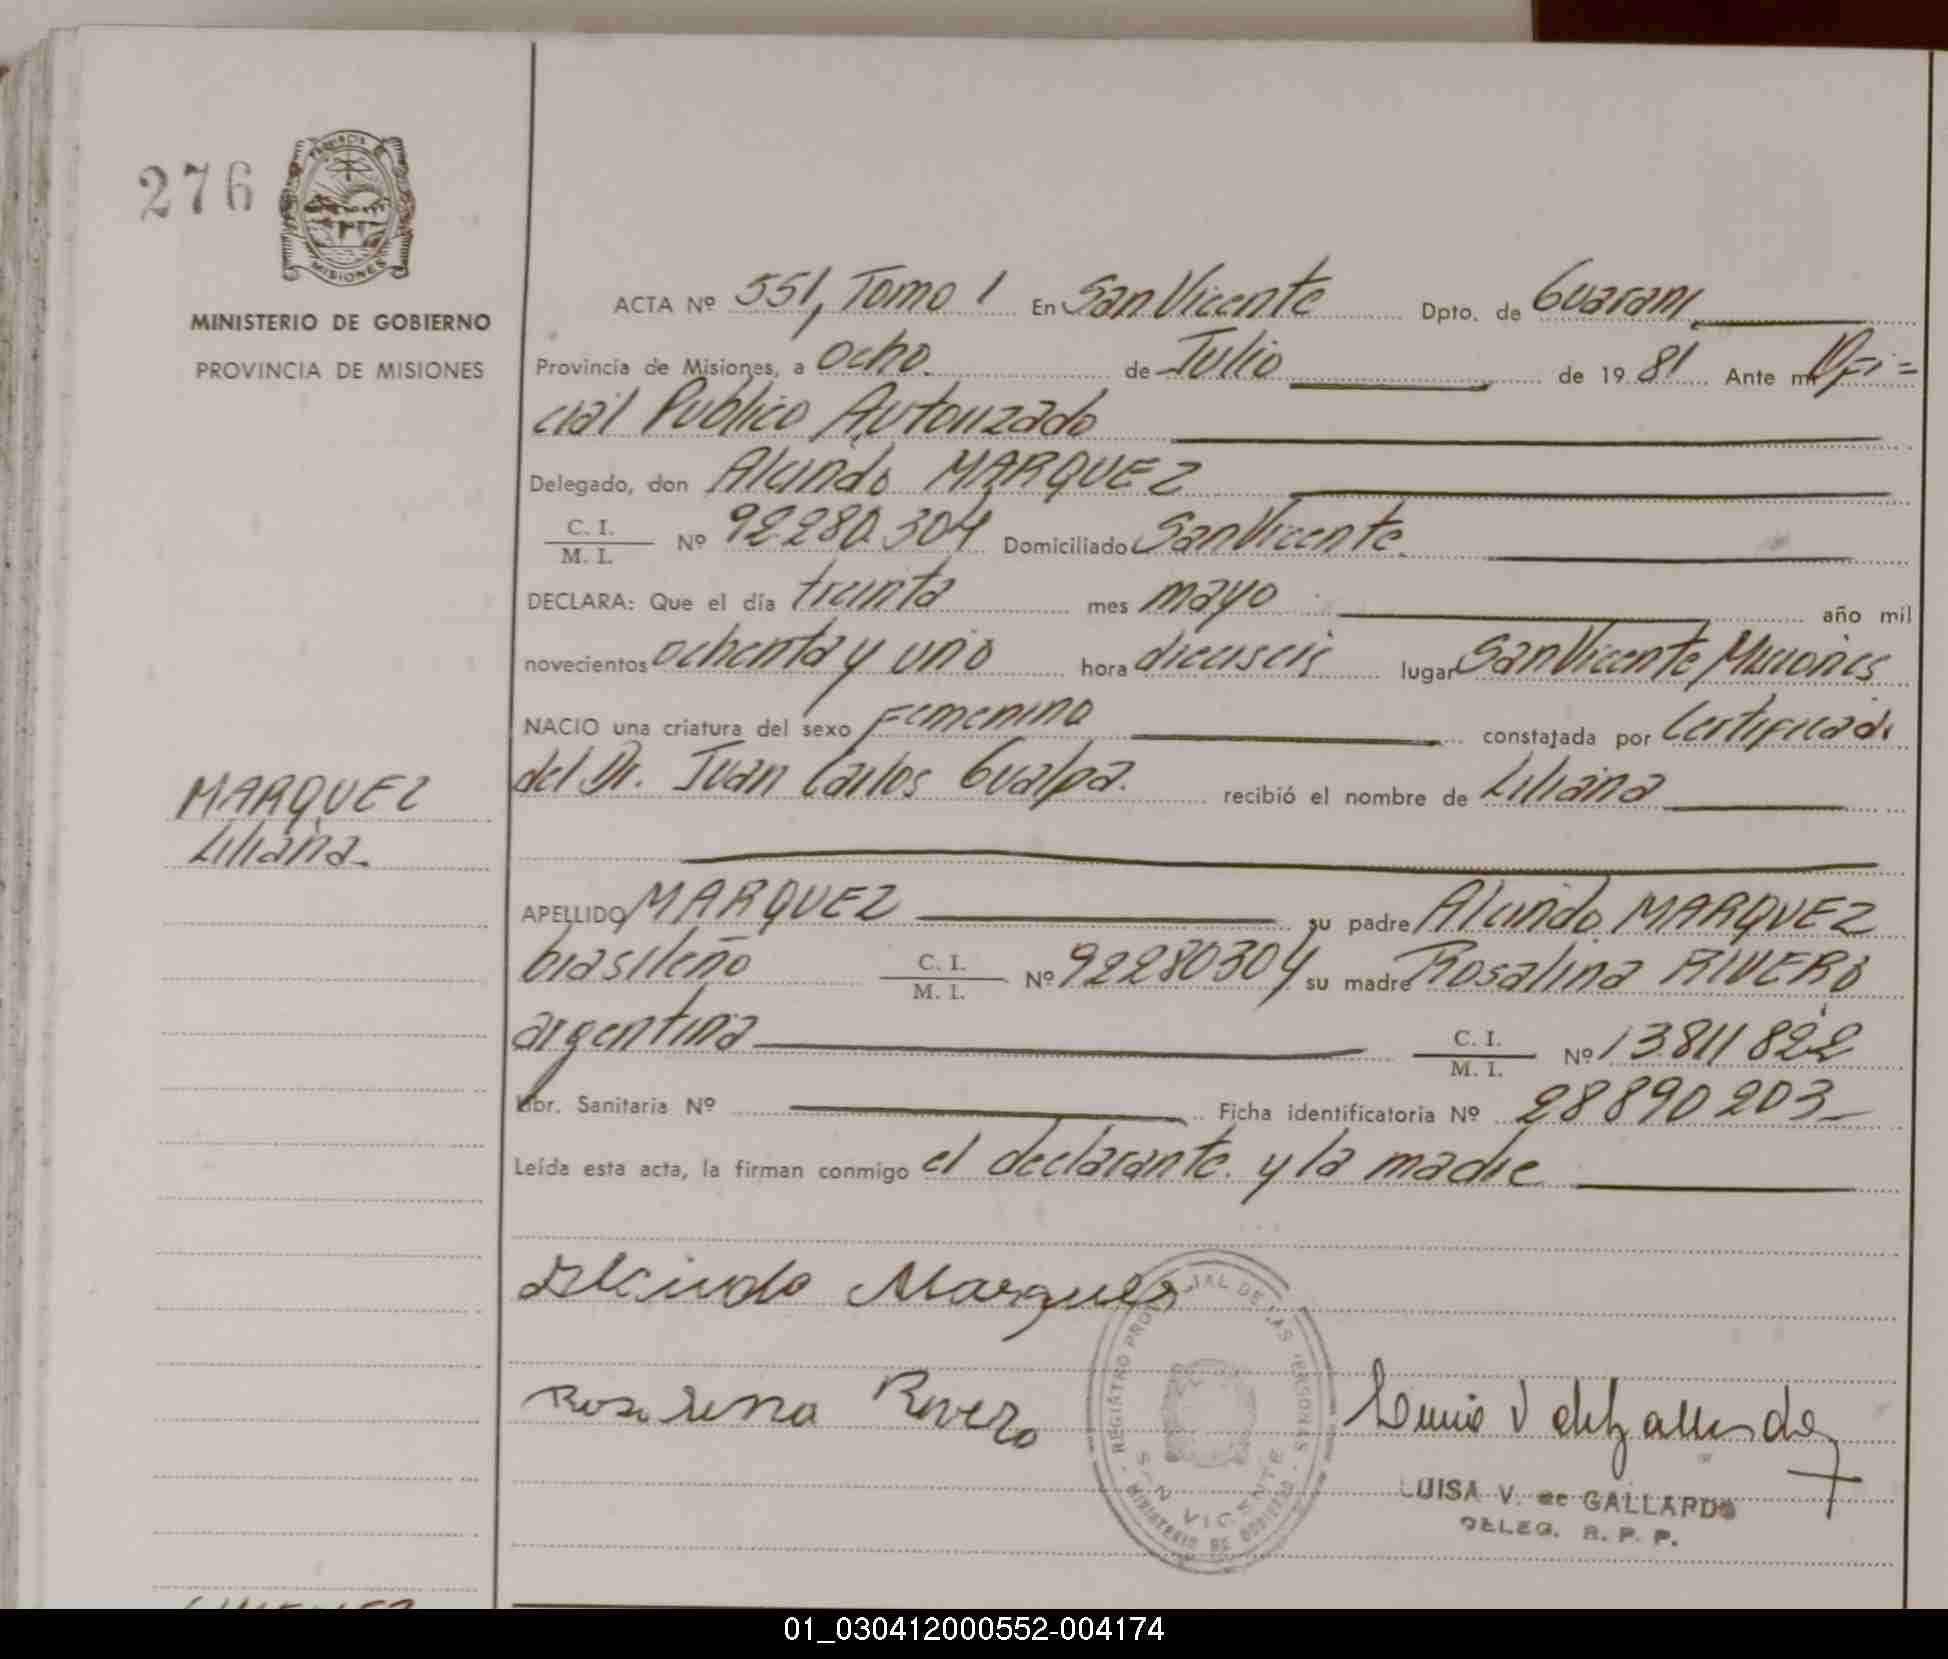 276
PROVINCIA DE
MISIONES
MINISTERIO DE GOBIERNO
PROVINCIA DE MISIONES
ACTA Nº 551, Tomo 1 En San Vicente Dpto. de Guarani
Provincia de Misiones, a ocho. de Julio de 19 81 Ante mi Ofi=
cial Publico Autorizado
Delegado, don Alcindo MARQUEZ
C. I.
M. I. Nº 92280.304 Domiciliado San Vicente.
DECLARA: Que el día treinta mes mayo año mil
novecientos ochenta y uno hora dieciseis lugar San Vicente, Misiones
NACIO una criatura del sexo Femenino constatada por Certificado
del Dr. Juan Carlos Gualpa. recibió el nombre de Liliana
MARQUEZ
Liliana.
APELLIDO MARQUEZ su padre Alcindo MARQUEZ
brasileño C. I.
M. I. Nº 92280304 su madre Rosalina RIVERO
argentina C. I.
M. I. Nº 13.811 822
Libr. Sanitaria Nº Ficha identificatoria Nº 28890203
Leída esta acta, la firman conmigo el declarante. y la madre
Alcindo Marques
Rosalina Rivero
REGISTRO PROVINCIAL DE LAS PERSONAS
SAN VICENTE
MINISTERIO DE GOBIERNO
Luisa V de Gallardo
LUISA V. de GALLARDO
DELEG. R. P. P.
01_030412000552-004174